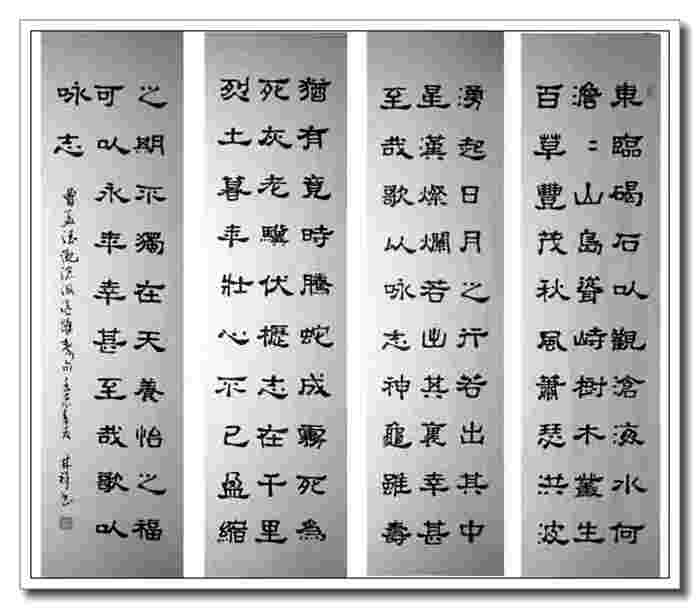 東臨碣石以觀滄海水何
澹〻山島聳峙樹木叢生
百草豐茂秋風蕭瑟洪波
湧起日月之行若出其中
星漢燦爛若出其裏幸甚
至哉歌以咏志神龜雖壽
猶有竟時騰蛇成霧死為
死灰老驥伏櫪志在千里
烈士暮年壯心不已盈縮
之期不獨在天養怡之福
可以永年幸甚至哉歌以
咏志
曹孟德觀滄海龜雖壽